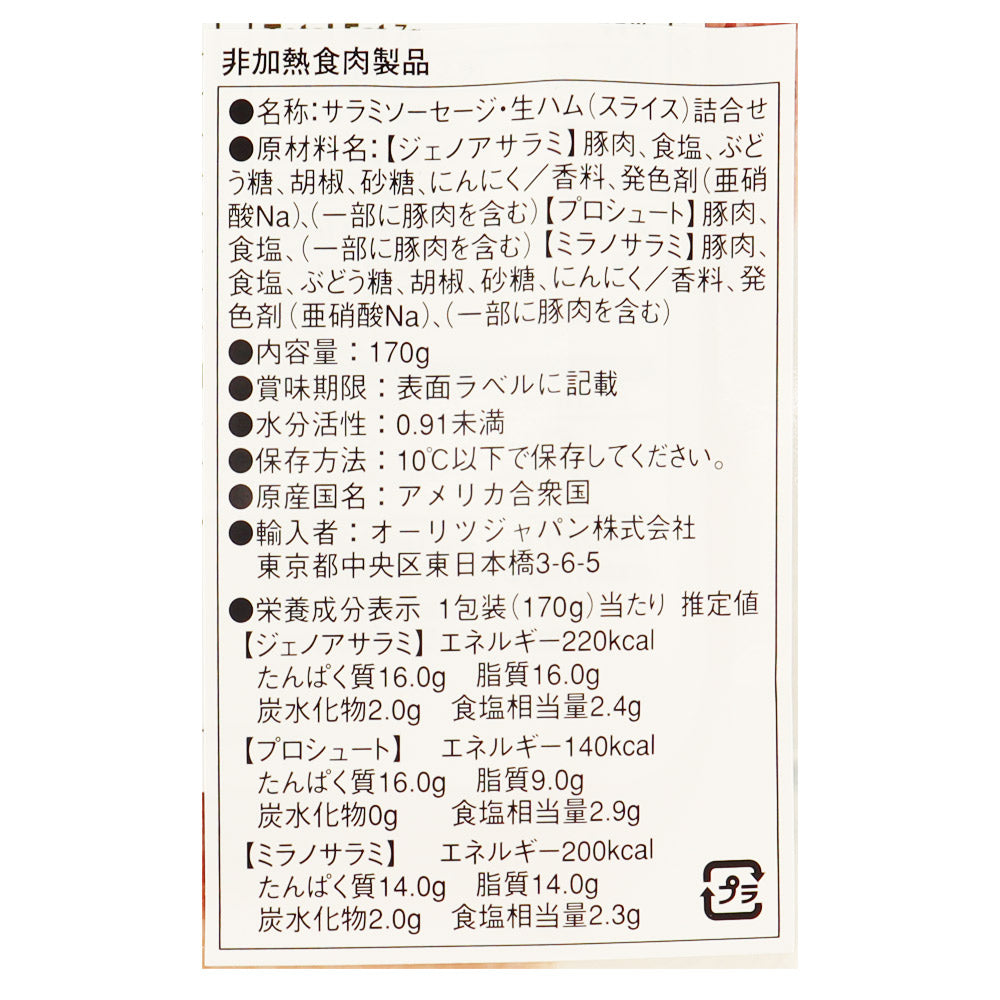 非加熱食肉製品
●名称:サラミソーセージ・生ハム(スライス)詰合せ
●原材料名:【ジェノアサラミ】豚肉、食塩、ぶど
う糖、胡椒、砂糖、にんにく/香料、発色剤(亜硝
酸Na)、(一部に豚肉を含む)【プロシュート】豚肉、
食塩、(一部に豚肉を含む)【ミラノサラミ】豚肉、
食塩、ぶどう糖、胡椒、砂糖、にんにく/香料、発
色剤(亜硝酸Na)、(一部に豚肉を含む)
●内容量:170g
●賞味期限:表面ラベルに記載
●水分活性:0.91未満
●保存方法:10℃以下で保存してください。
●原産国名:アメリカ合衆国
●輸入者:オーリツジャパン株式会社
東京都中央区東日本橋3-6-5
●栄養成分表示 1包装(170g)当たり 推定値
【ジェノアサラミ】エネルギー220kcal
たんぱく質16.0g 脂質16.0g
炭水化物2.0g 食塩相当量2.4g
【プロシュート】 エネルギー140kcal
たんぱく質16.0g 脂質9.0g
炭水化物0g 食塩相当量2.9g
【ミラノサラミ】 エネルギー200kcal
たんぱく質14.0g 脂質14.0g
炭水化物2.0g 食塩相当量2.3g
プラ